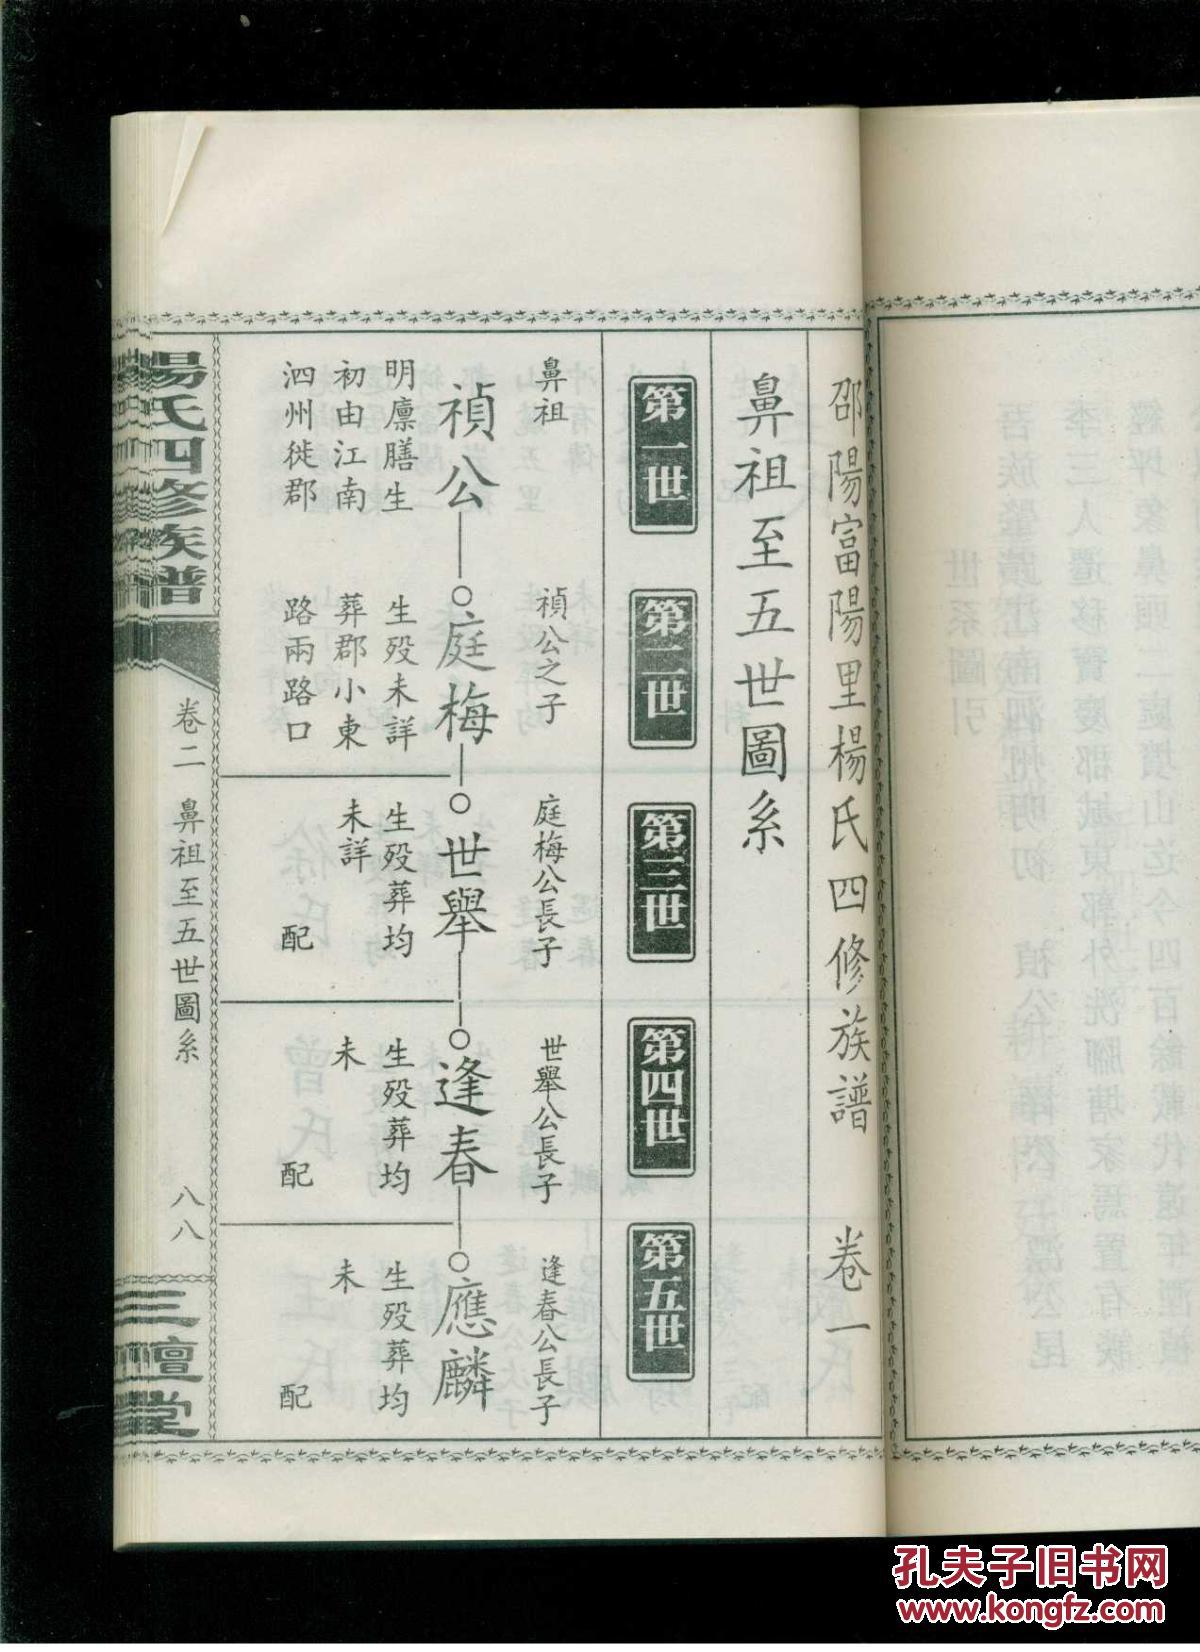 邵陽富陽里楊氏四修族譜 卷一
鼻祖至五世圖系
第一世
第二世
第三世
第四世
第五世
鼻祖
禎公
明廩膳生
初由江南
泗州徙郡
禎公之子
庭梅
生殁未詳
葬郡小東
路兩路口
庭梅公長子
世舉
生殁葬均
未詳
配
世舉公長子
逢春
生殁葬均
未
配
逢春公長子
應麟
生殁葬均
未
配
楊氏四修族譜
卷二 鼻祖至五世圖系
八八
三鱣堂
孔夫子旧书网
www.kongfz.com